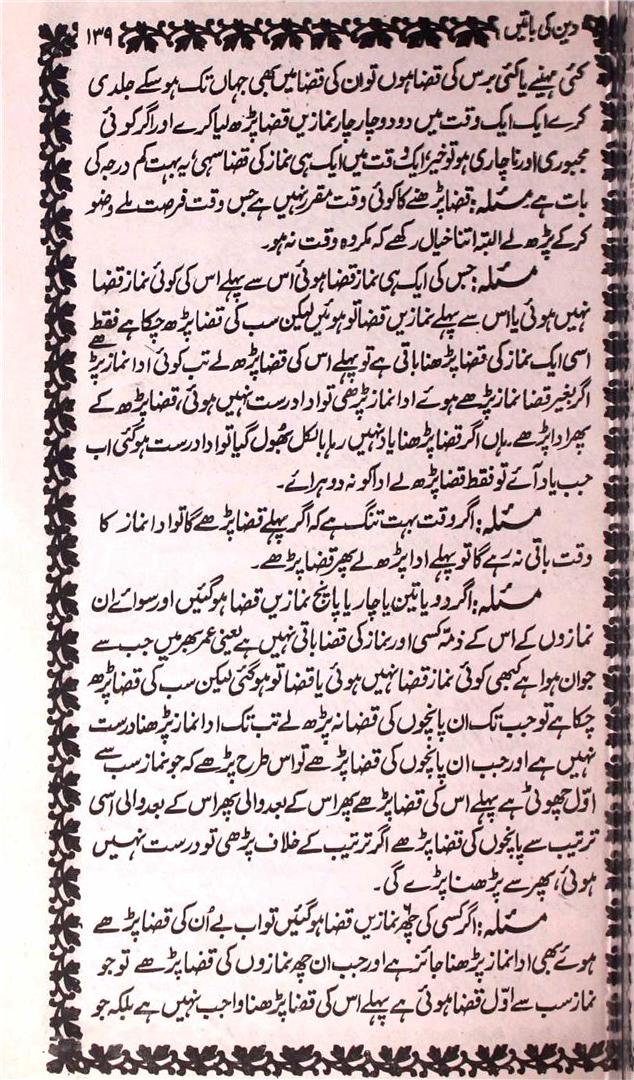 دین کی باتیں ۱۳۹
کئی مہینے یا کئی برس کی قضا ہوں تو ان کی قضا میں بھی جہاں تک ہوسکے جلدی
کرے ایک ایک وقت میں دو دو چار چار نمازیں قضا پڑھ لیا کرے اور اگر کوئی
مجبوری اور ناچاری ہو تو خیر، ایک وقت میں ایک ہی نماز کی قضا سہی، یہ بہت کم درجہ کی
بات ہے۔ مسئلہ: قضا پڑھنے کا کوئی وقت مقرر نہیں ہے جس وقت فرصت ملے وضو
کرکے پڑھ لے البتہ اتنا خیال رکھے کہ مکروہ وقت نہ ہو۔
مسئلہ: جس کی ایک ہی نماز قضا ہوئی اس سے پہلے اس کی کوئی نماز قضا
نہیں ہوئی یا اس سے پہلے نمازیں قضا تو ہوئیں لیکن سب کی قضا پڑھ چکا ہے فقط
اسی ایک نماز کی قضا پڑھنا باقی ہے تو پہلے اس کی قضا پڑھ لے تب کوئی ادا نماز پڑھے
اگر بغیر قضا نماز پڑھے ہوئے ادا نماز پڑھی تو ادا درست نہیں ہوئی، قضا پڑھ کے
پھر ادا پڑھے۔ ہاں اگر قضا پڑھنا یاد نہیں رہا بالکل بھول گیا تو ادا درست ہوگئی اب
جب یاد آئے تو فقط قضا پڑھ لے ادا کو نہ دوہرائے۔
مسئلہ: اگر وقت بہت تنگ ہے کہ اگر پہلے قضا پڑھے گا تو ادا نماز کا
وقت باقی نہ رہے گا تو پہلے ادا پڑھ لے پھر قضا پڑھے۔
مسئلہ: اگر دو یا تین یا چار یا پانچ نمازیں قضا ہوگئیں اور سوائے ان
نمازوں کے اس کے ذمّہ کسی اور نماز کی قضا باقی نہیں ہے یعنی عمر بھر میں جب سے
جوان ہوا ہے کبھی کوئی نماز قضا نہیں ہوئی یا قضا تو ہوگئی لیکن سب کی قضا پڑھ
چکا ہے تو جب تک ان پانچوں کی قضا نہ پڑھ لے تب تک ادا نماز پڑھنا درست
نہیں ہے اور جب ان پانچوں کی قضا پڑھے تو اس طرح پڑھے کہ جو نماز سب سے
اوّل چھوٹی ہے پہلے اس کی قضا پڑھے پھر اس کے بعد والی پھر اس کے بعد والی اسی
ترتیب سے پانچوں کی قضا پڑھے اگر ترتیب کے خلاف پڑھی تو درست نہیں
ہوئی، پھر سے پڑھنا پڑے گی۔
مسئلہ: اگر کسی کی چھ نمازیں قضا ہوگئیں تو اب بے اُن کی قضا پڑھے
ہوئے بھی ادا نماز پڑھنا جائز ہے اور جب ان چھ نمازوں کی قضا پڑھے تو جو
نماز سب سے اوّل قضا ہوئی ہے پہلے اس کی قضا پڑھنا واجب نہیں ہے بلکہ جو